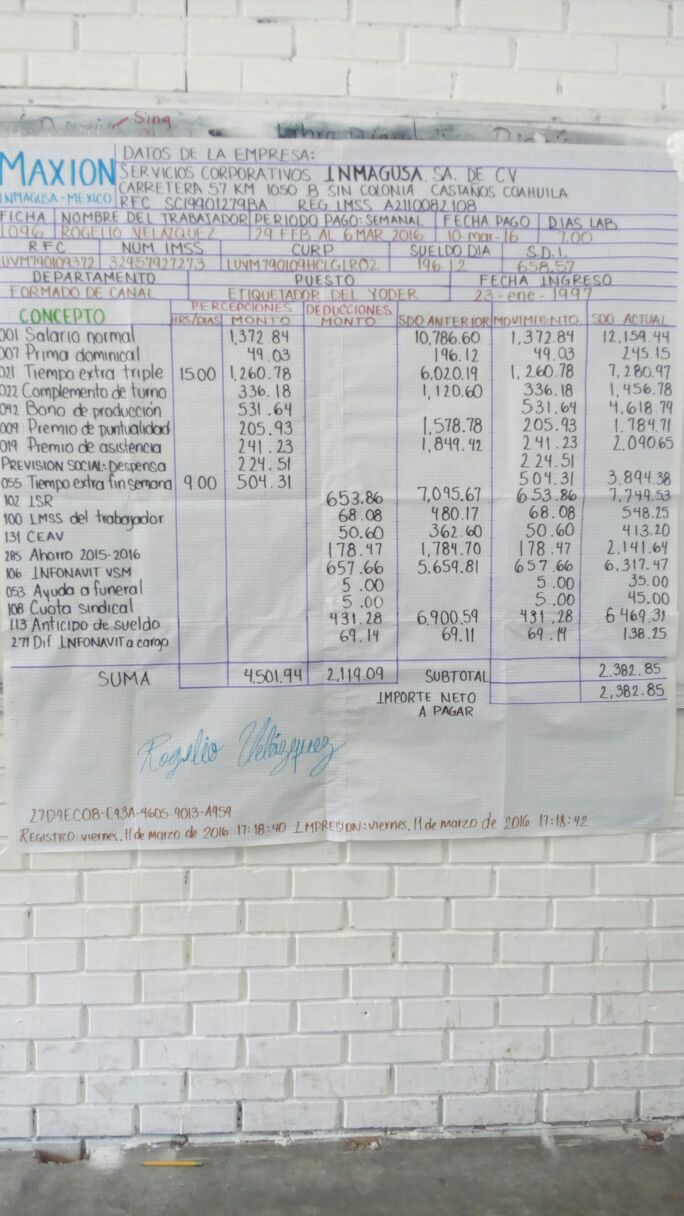 Sing
DATOS DE LA EMPRESA:
MAXION
INMAGUSA-MEXICO
SERVICIOS CORPORATIVOS INMAGUSA, SA. DE CV
CARRETERA 57 KM 1050 B SIN COLONIA CASTAÑOS COAHUILA
RFC SC19901279BA REG IMSS A2110082108
FICHA NOMBRE DEL TRABAJADOR PERIODO PAGO: SEMANAL FECHA PAGO DIAS LAB
1096 ROGELIO VELAZQUEZ 29 FEB AL 6 MAR 2016 10-mar-16 7.00
RFC NUM IMSS CURP SUELDO DIA S.D.I.
LUVM790109372 32957927273 LUVM790109HCLGLR02 196.12 658.57
DEPARTAMENTO PUESTO FECHA INGRESO
FORMADO DE CANAL ETIQUETADOR DEL YODER 23-ene-1997
CONCEPTO HRS/DIAS PERCEPCIONES MONTO DEDUCCIONES MONTO SDO ANTERIOR MOVIMIENTO SDO ACTUAL
001 Salario normal 1,372 84 10,786.60 1,372.84 12,159.44
007 Prima dominical 49.03 196.12 49.03 245.15
021 Tiempo extra triple 15.00 1,260.78 6,020.19 1,260.78 7,280.97
022 Complemento de turno 336.18 1,120.60 336.18 1,456.78
042 Bono de producción 531.64 531.64 4,618.79
009 Premio de puntualidad 205.93 1,578.78 205.93 1,784.71
019 Premio de asistencia 241.23 1,849.42 241.23 2,090.65
PREVISION SOCIAL: Despensa 224.51 224.51
055 Tiempo extra fin semana 9.00 504.31 504.31 3,894.38
102 ISR 653.86 7,095.67 653.86 7,749.53
100 IMSS del trabajador 68.08 480.17 68.08 548.25
131 CEAV 50.60 362.60 50.60 413.20
285 Ahorro 2015-2016 178.47 1,784.70 178.47 2.141.64
106 INFONAVIT VSM 657.66 5.659.81 657.66 6,317.47
053 Ayuda a funeral 5.00 5.00 35.00
108 Cuota sindical 5.00 5.00 45.00
113 Anticipo de sueldo 431.28 6,900.59 431.28 6 469.31
271 Dif. INFONAVIT a cargo 69.14 69.11 69.14 138.25
SUMA 4,501.94 2,119.09 SUBTOTAL 2.382.85
IMPORTE NETO A PAGAR 2,382.85
Rogelio Velázquez
27D9EC08-C93A-4605-9013-A954
REGISTRO: viernes, 11 de marzo de 2016 17:18:40 IMPRESION: viernes, 11 de marzo de 2016 17:18:42